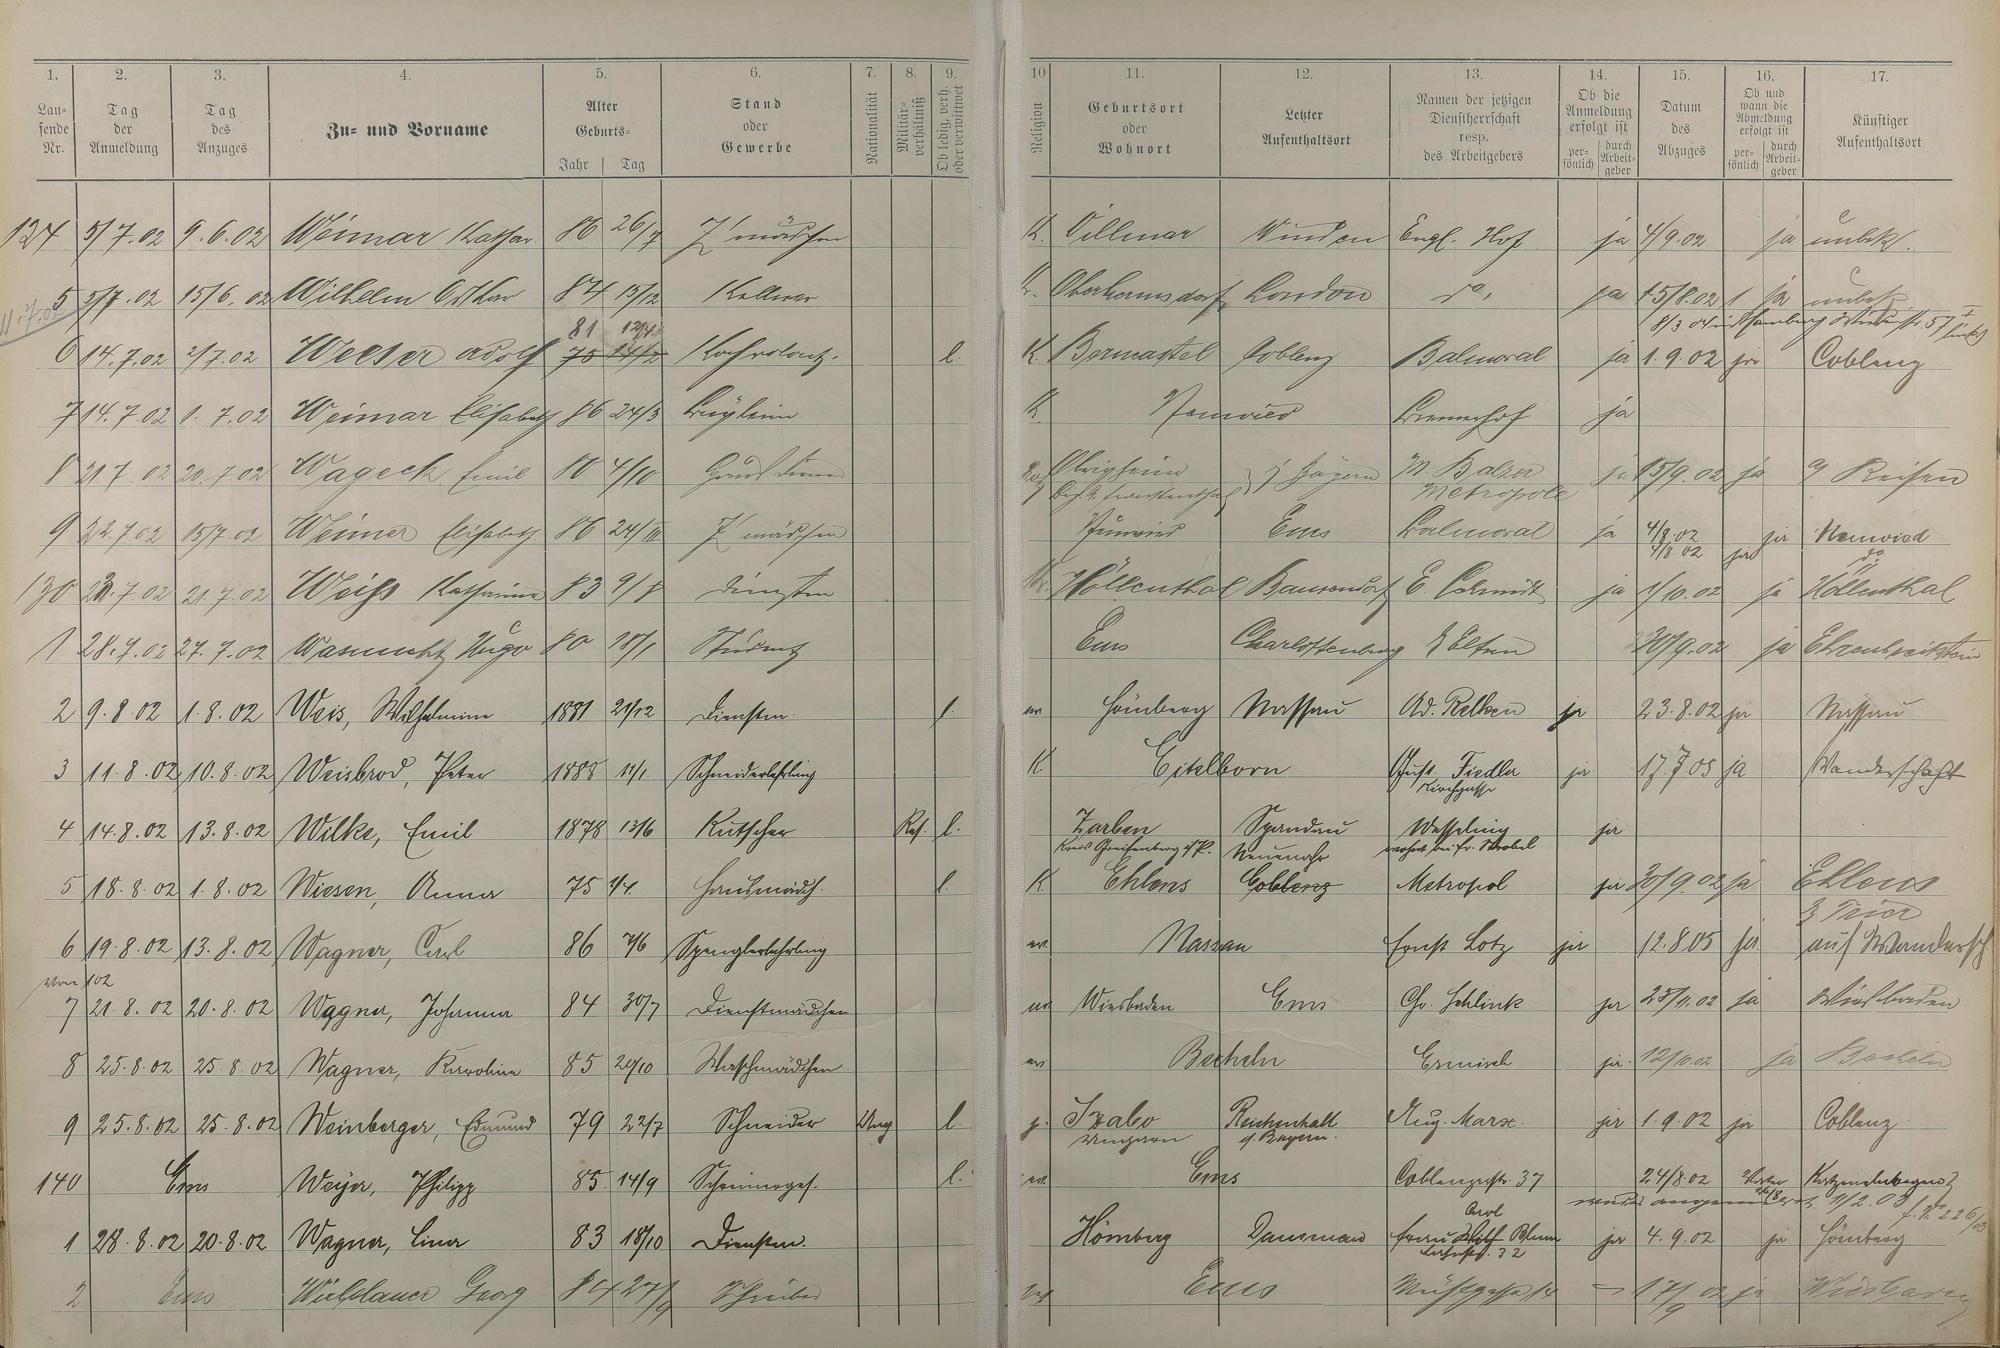 1. 2. 3. 4. 5. 6. 7. 8. 9. 10 11. 12. 13. 14. 15. 16. 17.
Laufende Nr. Tag der Anmeldung Tag des Anzuges Zu- und Vorname Alter Geburts- Jahr Tag Stand oder Gewerbe Nationalität Militärverhältniß Ob ledig, verh. oder verwittwet Religion Geburtsort oder Wohnort Letzter Aufenthaltsort Namen der jetzigen Dienstherrschaft resp. des Arbeitgebers Ob die Anmeldung erfolgt ist persönlich durch Arbeitgeber Datum des Abzuges Ob und wann die Abmeldung erfolgt ist persönlich durch Arbeitgeber Künftiger Aufenthaltsort
124 5/7.02 9.6.02 Weimar Kathar 86 26/7 Z'mädchen K. Villmar Winden Engl. Hof ja 4/9.02 ja unbek.
5 5/7.02 15/6.02 Wilhelm 84 15/12 Kellner K. Oberhermsdorf London do. ja 15/8.02 ja unbek.
81 12/4
6 14.7.02 2/7.02 Weeser Adolf 75 14/2 l. K. Berncastel Coblenz Balmoral ja 1.9.02 ja Coblenz
7 14.7.02 1.7.02 Weimar Elisabeth 86 24/3 K Neuwied ja
8 21.7.02 20.7.02 Wageck Emil 80 4/10 Hausdiener Obrigheim M. Balzer ja 15/9.02 ja a/ Reisen
Metropole
9 22.7.02 15/7.02 Weimer Elisabeth 86 24/III Z'mädchen Neuwied Ems Balmoral ja 4/8.02 ja Neuwied
4/8.02 ja do
130 23.7.02 21.7.02 Weiß Katharina 83 9/8 Dienstm K. Höllenthal Bausendorf E. Schmidt ja 1/10.02 ja Höllenthal
1 28.7.02 27.7.02 Wasmuht, Hugo 80 18/1 Student Ems Charlottenburg z Eltern 30/9.02 ja Ehrenbreitstein
2 9.8.02 1.8.02 Weis, Wilhelmine 1881 21/12 Dienstm. l. ev. Hömberg Nassau Ad. Relken ja 23.8.02 ja Nassau
3 11.8.02 10.8.02 Weisbrod, Peter 1888 11/1 Schneiderlehrling K Eitelborn Gust. Fiedler ja 17.7.05 ja Wanderschaft
Kirchgasse
4 14.8.02 13.8.02 Wilke, Emil 1878 13/6 Kutscher Res. l. Zarben Spandau Wesseling ja
Kreis Greifenberg i/P. Neuenahr wohnt bei Fr. Strobel
5 18.8.02 1.8.02 Wiesen, Anna 75 1/4. Hausmädch. l. K Ehlens Coblenz Metropol ja 30/9.02 ja Ehlens
z Trier
6 19.8.02 13.8.02 Wagner, Carl 86 7/6 Spenglerlehrling ev. Nassau Ernst Lotz ja 12.8.05 ja auf Wandersch
von 102
7 21.8.02 20.8.02 Wagner, Johanna 84 30/7 Dienstmädchen ev Wiesbaden Ems Chr. Schlink ja 25/11.02 ja Wiesbaden
8 25.8.02 25.8.02 Wagner, Karoline 85 20/10 Waschmädchen ev Becheln Ermisch ja 12/10.02 ja Becheln
9 25.8.02 25.8.02 Weinberger, Edmund 79 22/7 Schneider Ung l. j. Szabo Reichenhall Aug. Marx. ja 1.9.02 ja Coblenz
Ungarn i/ Bayern.
140 Ems Weyer, Philipp 85. 14/9 Schreinerges. l. ev. Ems Coblenzerstr. 37 24/8.02 Vater Katzenelnbogen
1 28.8.02 20.8.02 Wagner, Lina 83 18/10 Dienstm. Hömberg Dausenau Frau Wilh Blum ja 4.9.02 ja Hömberg
Carl
Lahnstr. 32
2 Ems Georg 84 27/9 Schreiber Ems 14 — 17/9 02 ja